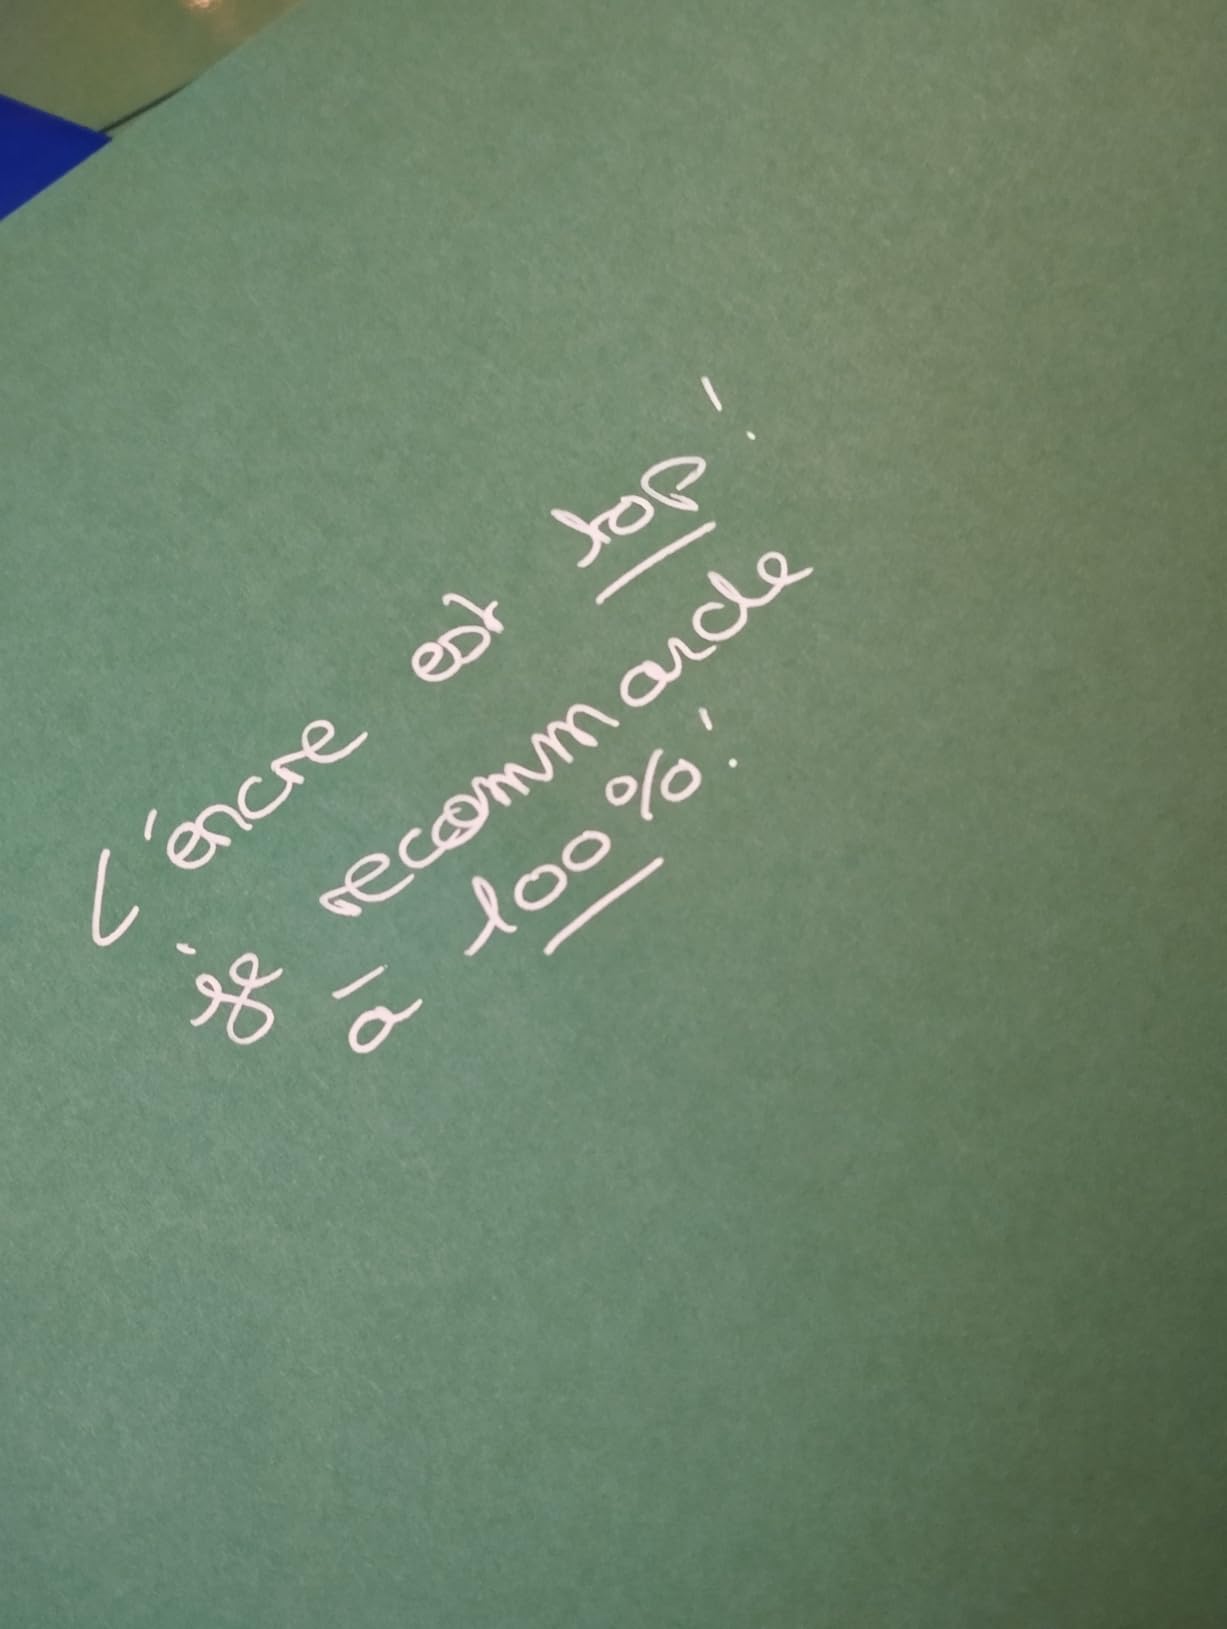 L'encre est top !
je recommande
à 100%!